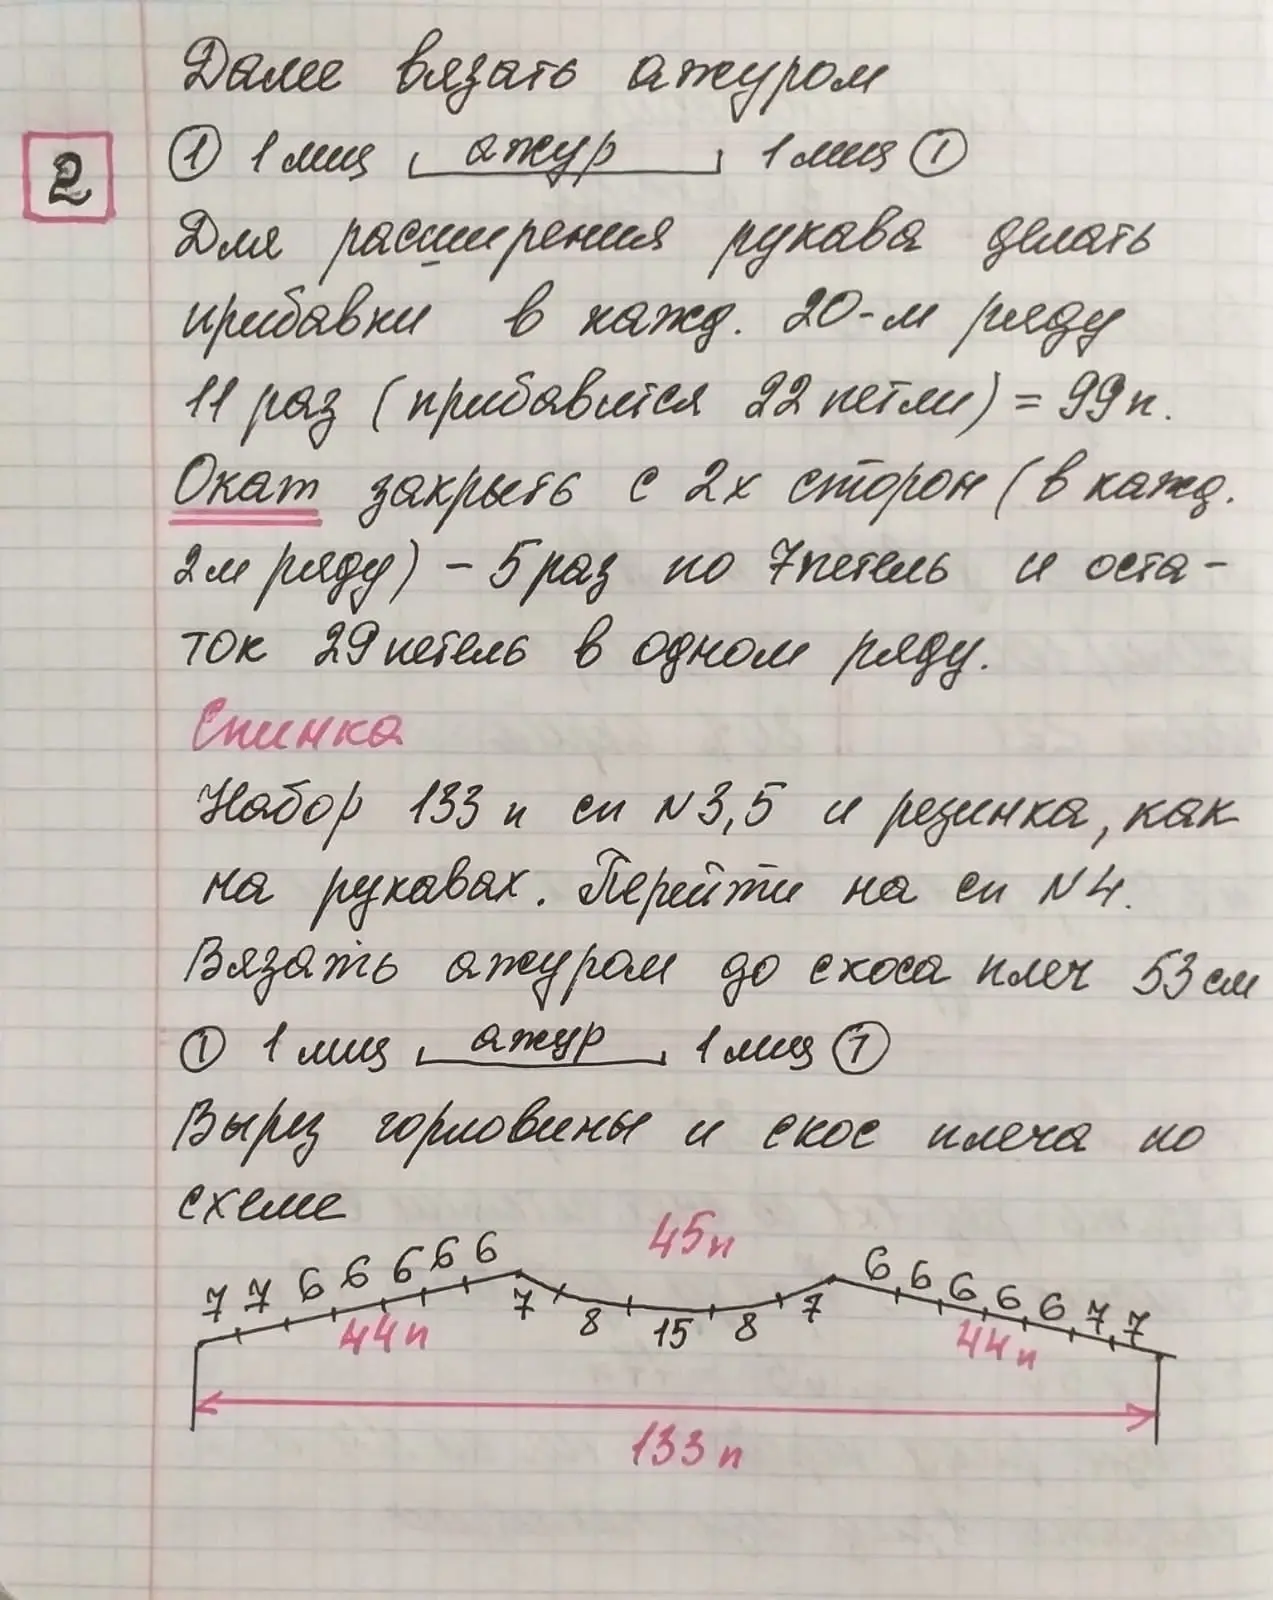 2
Далее вязать ажуром
① 1 лиц ажур 1 лиц ①
Для расширения рукава делать
прибавки в кажд. 20-м ряду
11 раз (прибавится 22 петли) = 99 п.
Окат закрыть с 2х сторон (в кажд.
2м ряду) - 5 раз по 7 петель и оста-
ток 29 петель в одном ряду.
Спинка
Набор 133 п сп N3,5 и резинка, как
на рукавах. Перейти на сп N4.
Вязать ажуром до скоса плеч 53 см
① 1 лиц ажур 1 лиц ①
Вырез горловины и скос плеча по
схеме
45 п
7 7 6 6 6 6 6 7 8 15 8 7 6 6 6 6 6 7 7
44 п 44 п
133 п